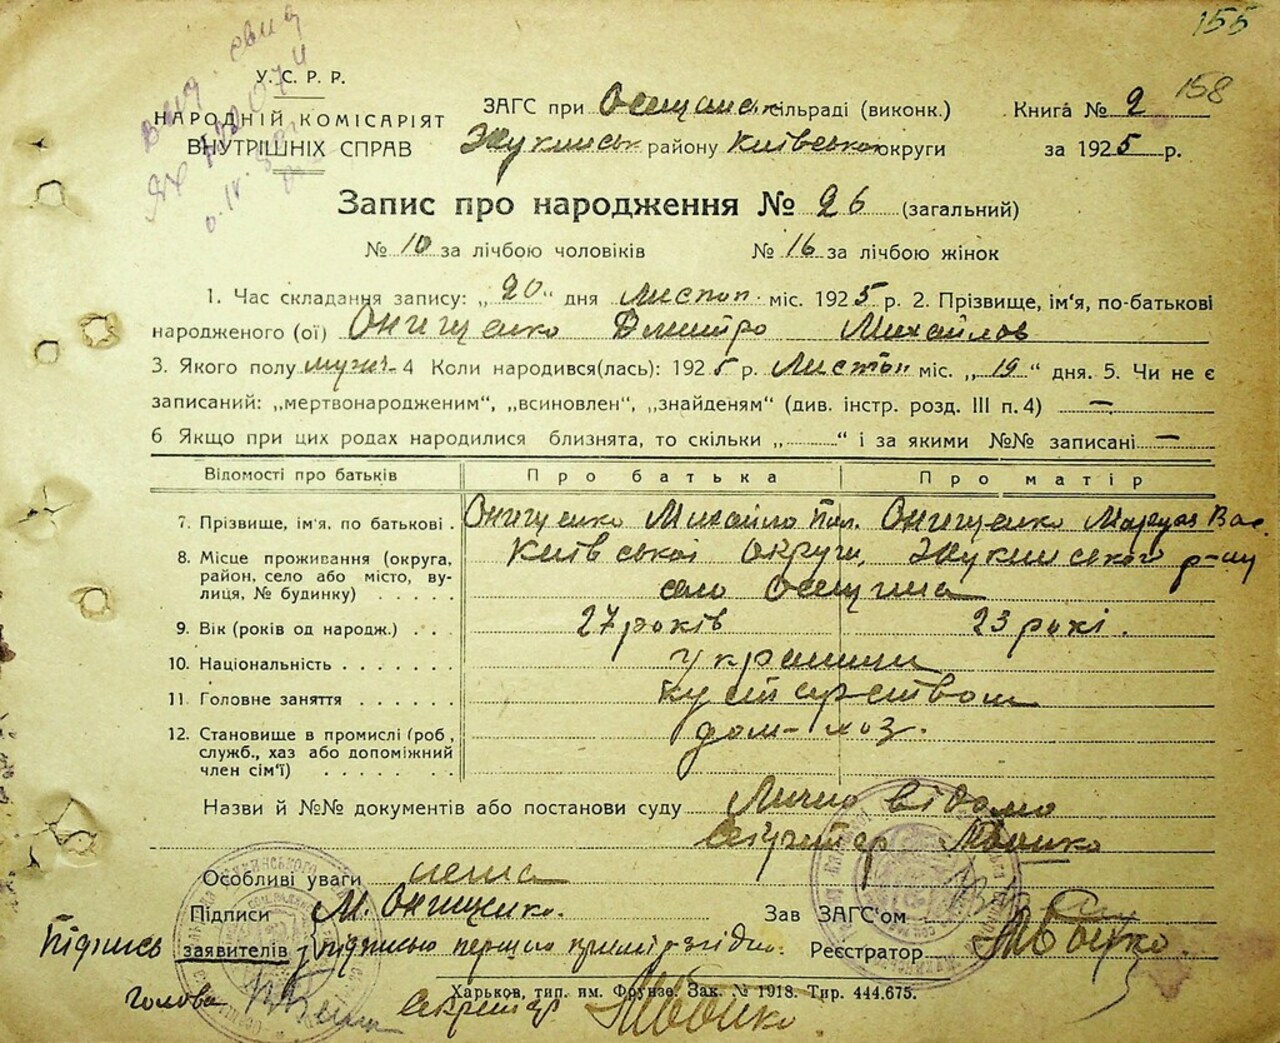 155
158
У. С. Р. Р.
НАРОДНІЙ КОМІСАРІЯТ
ВНУТРІШНІХ СПРАВ
ЗАГС при Осещанс. сільраді (виконк.) Книга № 2
району Київської округи за 1925 р.
Запис про народження № 26 (загальний)
№ 10 за лічбою чоловіків № 16 за лічбою жінок
1. Час складання запису: „20“ дня Листоп. міс. 1925 р. 2. Прізвище, ім'я, по-батькові
народженого (ої) Онищенко Дмитро Михайлов
3. Якого полу мужч. 4 Коли народився(лась): 1925 р. Листоп міс. „19“ дня. 5. Чи не є
записаний: „мертвонародженим“, „всиновлен“, „знайденям“ (див. інстр. розд. III п. 4) —
6 Якщо при цих родах народилися близнята, то скільки „ “ і за якими №№ записані —
Відомості про батьків Про батька Про матір
7. Прізвище, ім'я, по батькові . Онищенко Михайло Пол. Онищенко Вас.
8. Місце проживання (округа, Київської Округи,
район, село або місто, ву- село Осещина
лиця, № будинку) . . . . .
9. Вік (років од народж.) . . . 27 років 23 рокі.
10. Національність . . . . . . . українци
11. Головне заняття . . . . . .
12. Становище в промислі (роб, дом-хоз.
служб., хаз або допоміжний
член сім'ї) . . . . . . .
Назви й №№ документів або постанови суду Лично відомо
Секритер Мбойко
Особливі уваги нема
Підписи М. Онищенко. Зав ЗАГС'ом
Підпись заявителів підписью першого Реєстратор МБойко.
Харьков, тип. им. Фрунзе. Зак. № 1918. Тир. 444.675.
Голова Секритер МБойко.